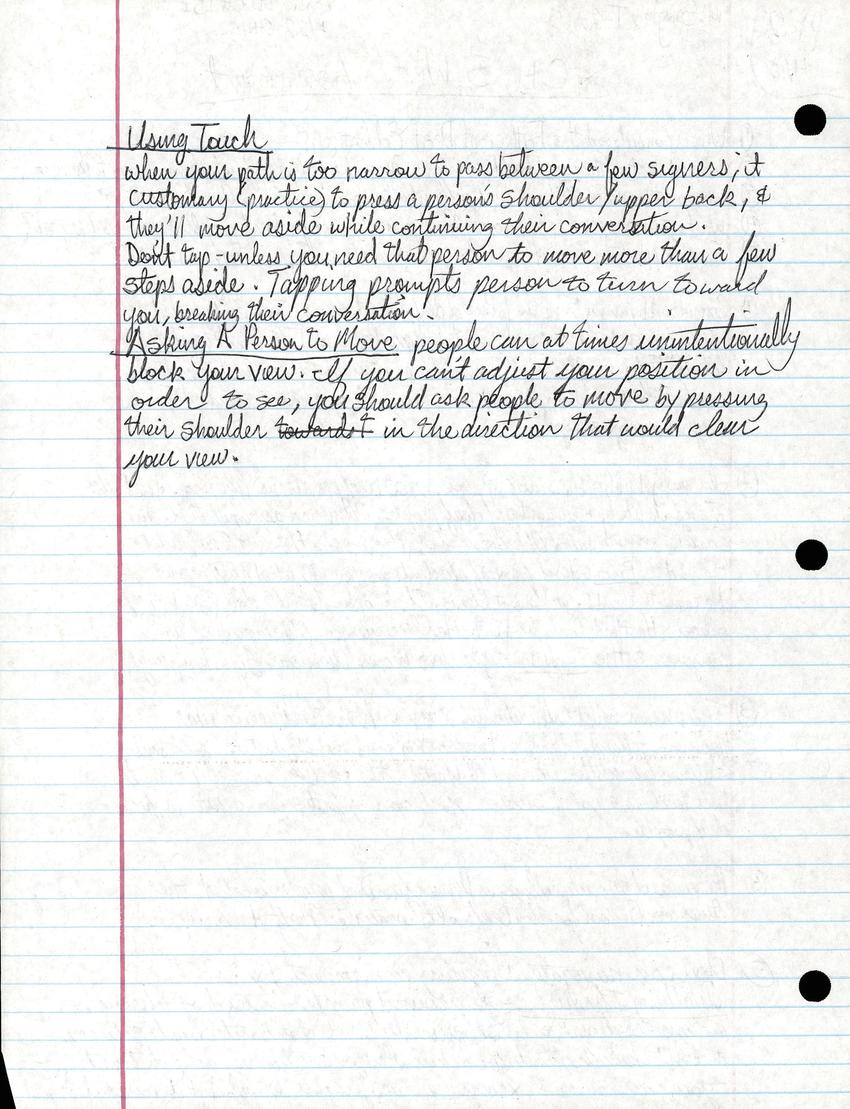 Using Touch
when your path is too narrow to pass between a few signers; it
customary (practice) to press a person's shoulder/upper back, &
they'll move aside while continuing their conversation.
Don't tap - unless you need that person to move more than a few
steps aside. Tapping prompts person to turn toward
you, breaking their conversation.
Asking A Person to Move people can at times unintentionally
block your view. If you can't adjust your position in
order to see, you should ask people to move by pressing
their shoulder towards t in the direction that would clear
your view.